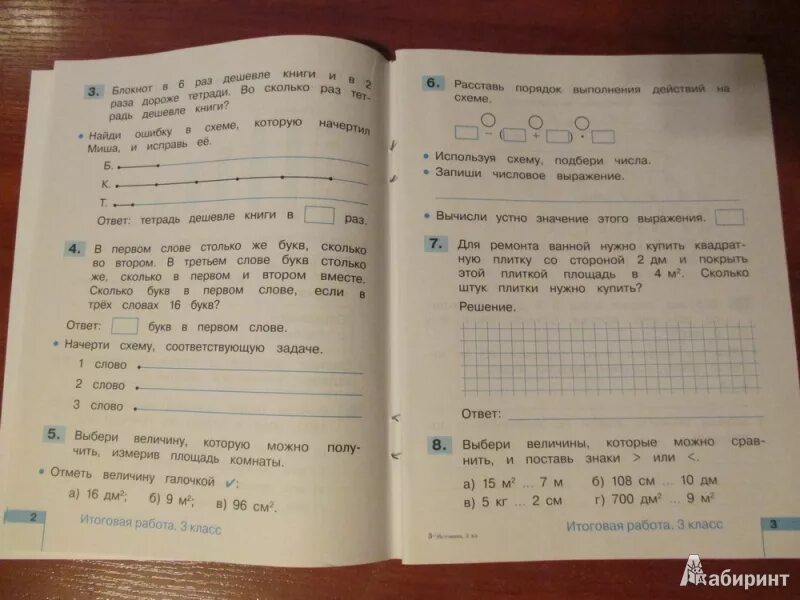 3. Блокнот в 6 раз дешевле книги и в 2
раза дороже тетради. Во сколько раз тет-
радь дешевле книги?
• Найди ошибку в схеме, которую начертил
Миша, и исправь её.
Б.
К.
Т.
Ответ: тетрадь дешевле книги в раз.
4. В первом слове столько же букв, сколько
во втором. В третьем слове букв столько
же, сколько в первом и втором вместе.
Сколько букв в первом слове, если в
трёх словах 16 букв?
Ответ: букв в первом слове.
• Начерти схему, соответствующую задаче.
1 слово
2 слово
3 слово
5. Выбери величину, которую можно полу-
чить, измерив площадь комнаты.
• Отметь величину галочкой ✓:
а) 16 дм²; б) 9 м²; в) 96 см².
2 Итоговая работа. 3 класс
6. Расставь порядок выполнения действий на
схеме.
− ( + ) ·
• Используя схему, подбери числа.
• Запиши числовое выражение.
• Вычисли устно значение этого выражения.
7. Для ремонта ванной нужно купить квадрат-
ную плитку со стороной 2 дм и покрыть
этой плиткой площадь в 4 м². Сколько
штук плитки нужно купить?
Решение.
Ответ:
8. Выбери величины, которые можно срав-
нить, и поставь знаки > или <.
а) 15 м² ... 7 м б) 108 см ... 10 дм
в) 5 кг ... 2 см г) 700 дм² ... 9 м²
Итоговая работа. 3 класс 3
Лабиринт